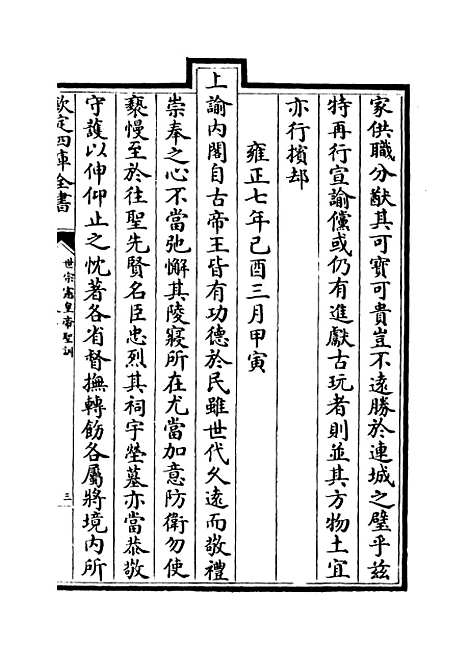 家供職分猷其可寳可貴豈不遠勝於連城之璧乎兹
特再行宣諭儻或仍有進獻古玩者則並其方物土宜
亦行擯却
雍正七年己酉三月甲寅
上諭内閣自古帝王皆有功德於民雖世代久遠而敬禮
崇奉之心不當弛懈其陵寢所在尤當加意防衛勿使
褻慢至於往聖先賢名臣忠烈其祠宇塋墓亦當恭敬
守護以伸仰止之忱著各省督撫轉飭各屬將境内所
欽定四庫全書
世宗憲皇帝聖訓
三